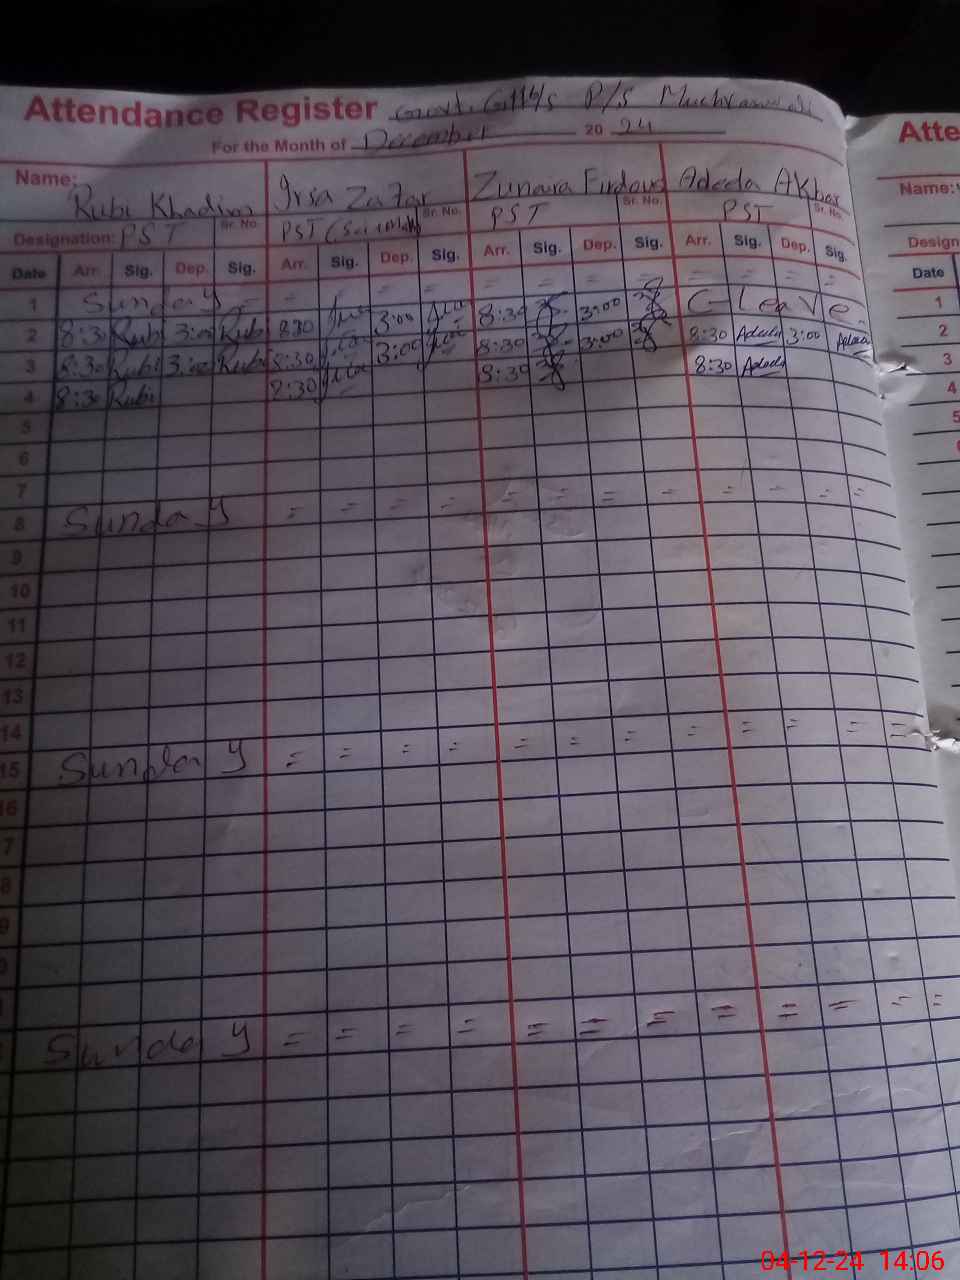 Attendance Register Govt. P/S
For the Month of December 20 24
Atte
Name: Rubi Irsa Zafar Zunara Firdous Adeda Akhar
Name:
Sr. No. Sr. No. Sr. No. Sr. No.
Designation: PST PST PST PST
Design
Date Arr. Sig. Dep. Sig. Arr. Sig. Dep. Sig. Arr. Sig. Dep. Sig. Arr. Sig. Dep. Sig.
Date
1 Sunday = = = = = = = = = = = = =
1
2 8:30 Rubi 3:00 Rubi 8:30 3:00 8:30 3:00 C-Leave
2
3 8:30 Rubi 3:00 Rubi 8:30 3:00 8:30 3:00 8:30 3:00
3
4 8:30 Rubi 8:30 8:30 8:30
4
5
5
6
7
8 Sunday = = = = = = = = = = = =
9
10
11
12
13
14
15 Sunday = = = = = = = = = = = =
16
7
8
9
0
Sunday = = = = = = = = = = = =
04-12-24 14:06